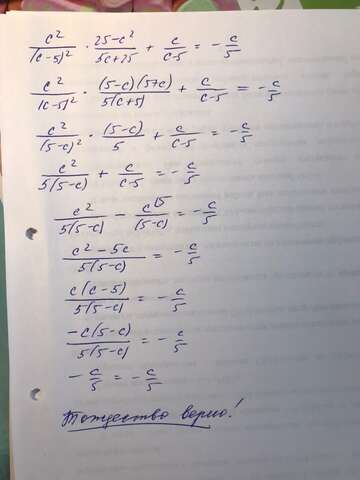 c²/(c-5)² · 25-c²/5c+25 + c/c-5 = -c/5
c²/(c-5)² · (5-c)(5+c)/5(c+5) + c/c-5 = -c/5
c²/(5-c)² · (5-c)/5 + c/c-5 = -c/5
c²/5(5-c) + c/c-5 = -c/5
c²/5(5-c) - c^5/(5-c) = -c/5
c²-5c/5(5-c) = -c/5
c(c-5)/5(5-c) = -c/5
-c(5-c)/5(5-c) = -c/5
-c/5 = -c/5
Тождество верно!